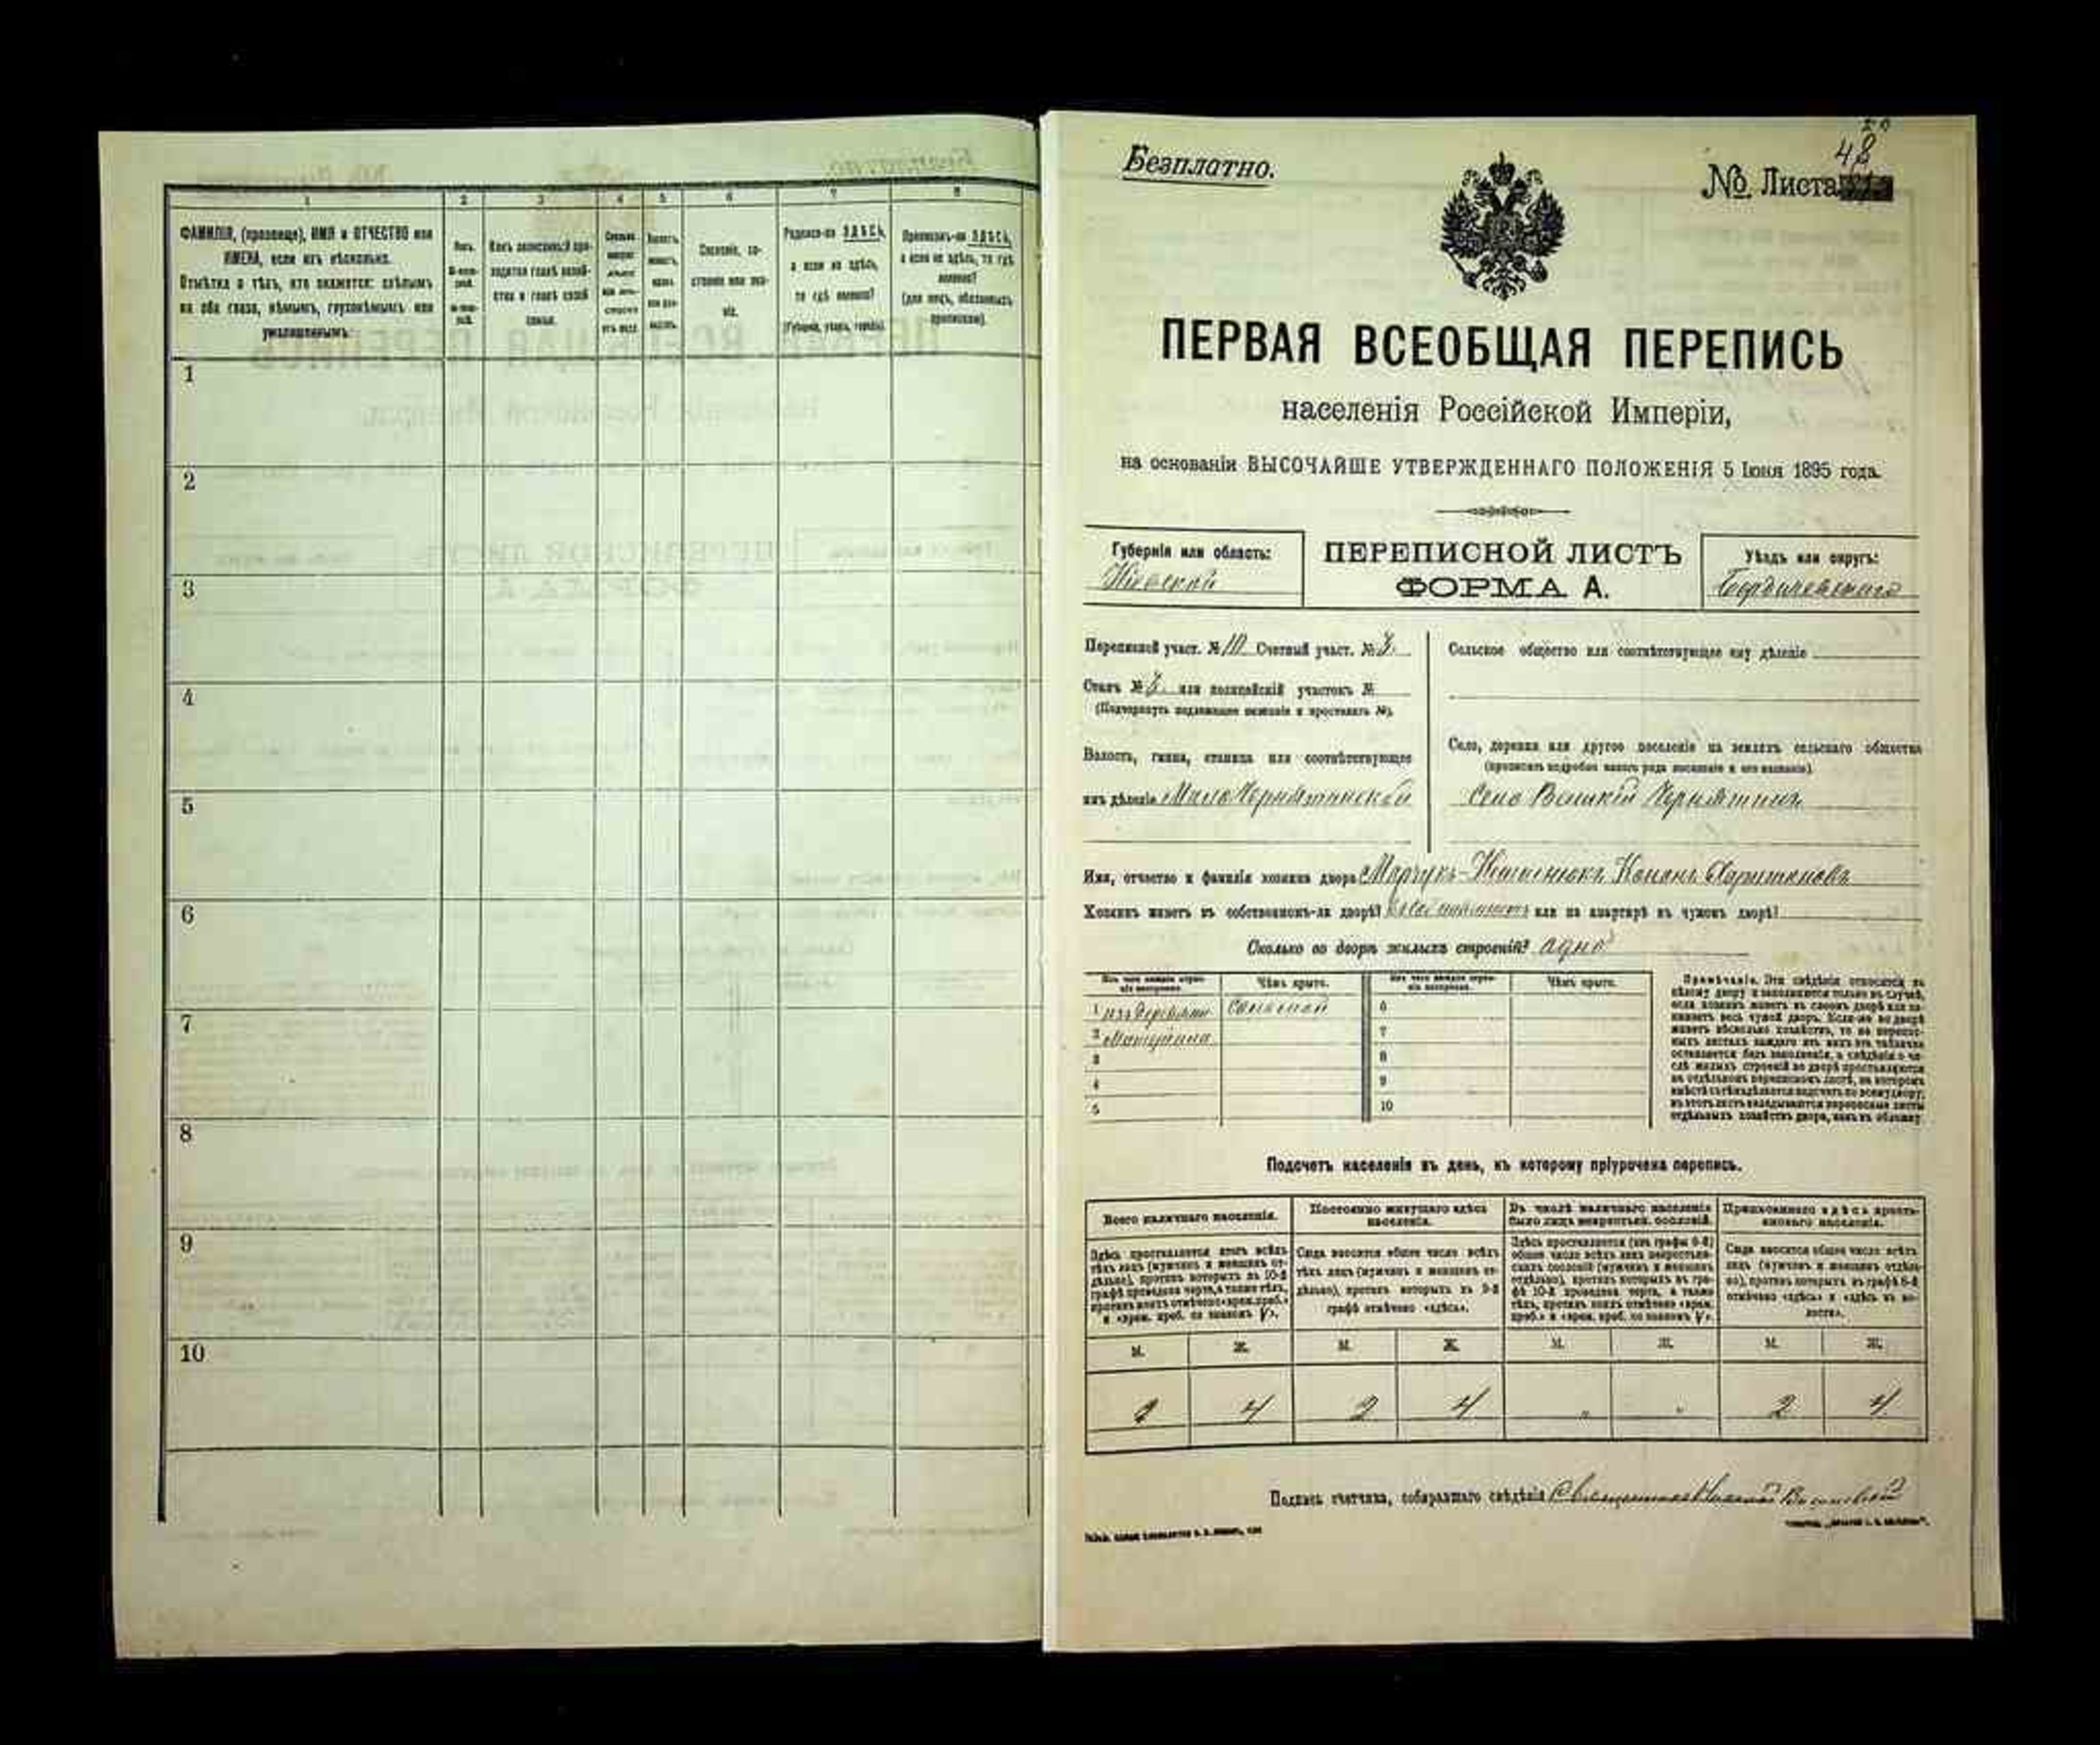 1 2 3 4 5 6 7 8
ФАМИЛІЯ, (прозвище), ИМЯ и ОТЧЕСТВО или
ИМЕНА, если ихъ нѣсколько.
Отмѣтка о тѣхъ, кто окажется: слѣпымъ
на оба глаза, нѣмымъ, глухонѣмымъ или
умалишеннымъ.
Полъ.
Какъ записанный при-
ходится главѣ хозяй-
ства и главѣ своей
семьи.
Сословіе, со-
стояніе или зва-
ніе.
Родился-ли ЗДѢСЬ,
а если не здѣсь,
то гдѣ именно?
(Губернія, уѣздъ, городъ).
Приписанъ-ли ЗДѢСЬ,
а если не здѣсь, то гдѣ
именно?
(для лицъ, обязанныхъ
припиской).
1
2
3
4
5
6
7
8
9
10
Безплатно.
48
№ Листа
ПЕРВАЯ ВСЕОБЩАЯ ПЕРЕПИСЬ
населенія Россійской Имперіи,
на основаніи ВЫСОЧАЙШЕ УТВЕРЖДЕННАГО ПОЛОЖЕНІЯ 5 Іюня 1895 года.
Губернія или область:
Кіевской
ПЕРЕПИСНОЙ ЛИСТЪ
ФОРМА А.
Уѣздъ или округъ:
Бердичевскаго
Переписной участ. № 10 Счетный участ. № 3.
Станъ № 3. или полицейскій участокъ №
(Подчеркнуть надлежащее названіе и проставить №).
Волость, гмина, станица или соотвѣтствующее
имъ дѣленіе Мало Чернятинской
Сельское общество или соотвѣтствующее ему дѣленіе
Село, деревня или другое поселеніе на земляхъ сельскаго общества
(прописать подробно какого рода поселеніе и его названіе).
Село Великій Чернятинъ
Имя, отчество и фамилія хозяина двора Марчукъ- Кононъ
Хозяинъ живетъ въ собственномъ-ли дворѣ? или на квартирѣ въ чужомъ дворѣ?
Сколько во дворѣ жилыхъ строеній? одно
Изъ чего каждое строе-
ніе построено.
Чѣмъ крыто.
Изъ чего каждое строе-
ніе построено.
Чѣмъ крыто.
1 изъ деревяно Соломой 6
2 Матеріала 7
3 8
4 9
5 10
Примѣчаніе. Эти свѣдѣнія относятся къ
цѣлому двору и заполняются только въ случаѣ,
если хозяинъ живетъ въ своемъ дворѣ или за-
нимаетъ весь чужой дворъ. Если-же во дворѣ
живетъ нѣсколько хозяйствъ, то на перепис-
ныхъ листахъ каждаго изъ нихъ эта табличка
оставляется безъ заполненія, а свѣдѣнія о чи-
слѣ жилыхъ строеній во дворѣ проставляются
на отдѣльномъ переписномъ листѣ, на которомъ
вмѣстѣ съ тѣмъ дѣлается подсчетъ по всему двору;
въ этотъ листъ вкладываются переписные листы
отдѣльныхъ хозяйствъ двора, какъ въ обложку.
Подсчетъ населенія въ день, къ которому пріурочена перепись.
Всего наличнаго населенія.
Постоянно живущаго здѣсь
населенія.
Въ числѣ наличнаго населенія
было лицъ некрестьян. сословій.
Приписаннаго здѣсь кресть-
янскаго населенія.
Здѣсь проставляется итогъ всѣхъ
тѣхъ лицъ (мужчинъ и женщинъ от-
дѣльно), противъ которыхъ въ 10-й
графѣ проведена черта, а также тѣхъ,
противъ коихъ отмѣчено «врем. преб.»
и «врем. преб. со знакомъ V».
Сюда вносится общее число всѣхъ
тѣхъ лицъ (мужчинъ и женщинъ от-
дѣльно), противъ которыхъ въ 9-й
графѣ отмѣчено «здѣсь».
Здѣсь проставляется (изъ графы 6-й)
общее число всѣхъ лицъ некрестьян-
скихъ сословій (мужчинъ и женщинъ
отдѣльно), противъ которыхъ въ гра-
фѣ 10-й проведена черта, а также
тѣхъ, противъ коихъ отмѣчено «врем.
преб.» и «врем. преб. со знакомъ V».
Сюда вносится общее число всѣхъ
лицъ (мужчинъ и женщинъ отдѣль-
но), противъ которыхъ въ графѣ 8-й
отмѣчено «здѣсь» и «здѣсь въ во-
лости».
М. Ж. М. Ж. М. Ж. М. Ж.
2 4 2 4 " " 2 4
Подпись счетчика, собиравшаго свѣдѣнія Священникъ